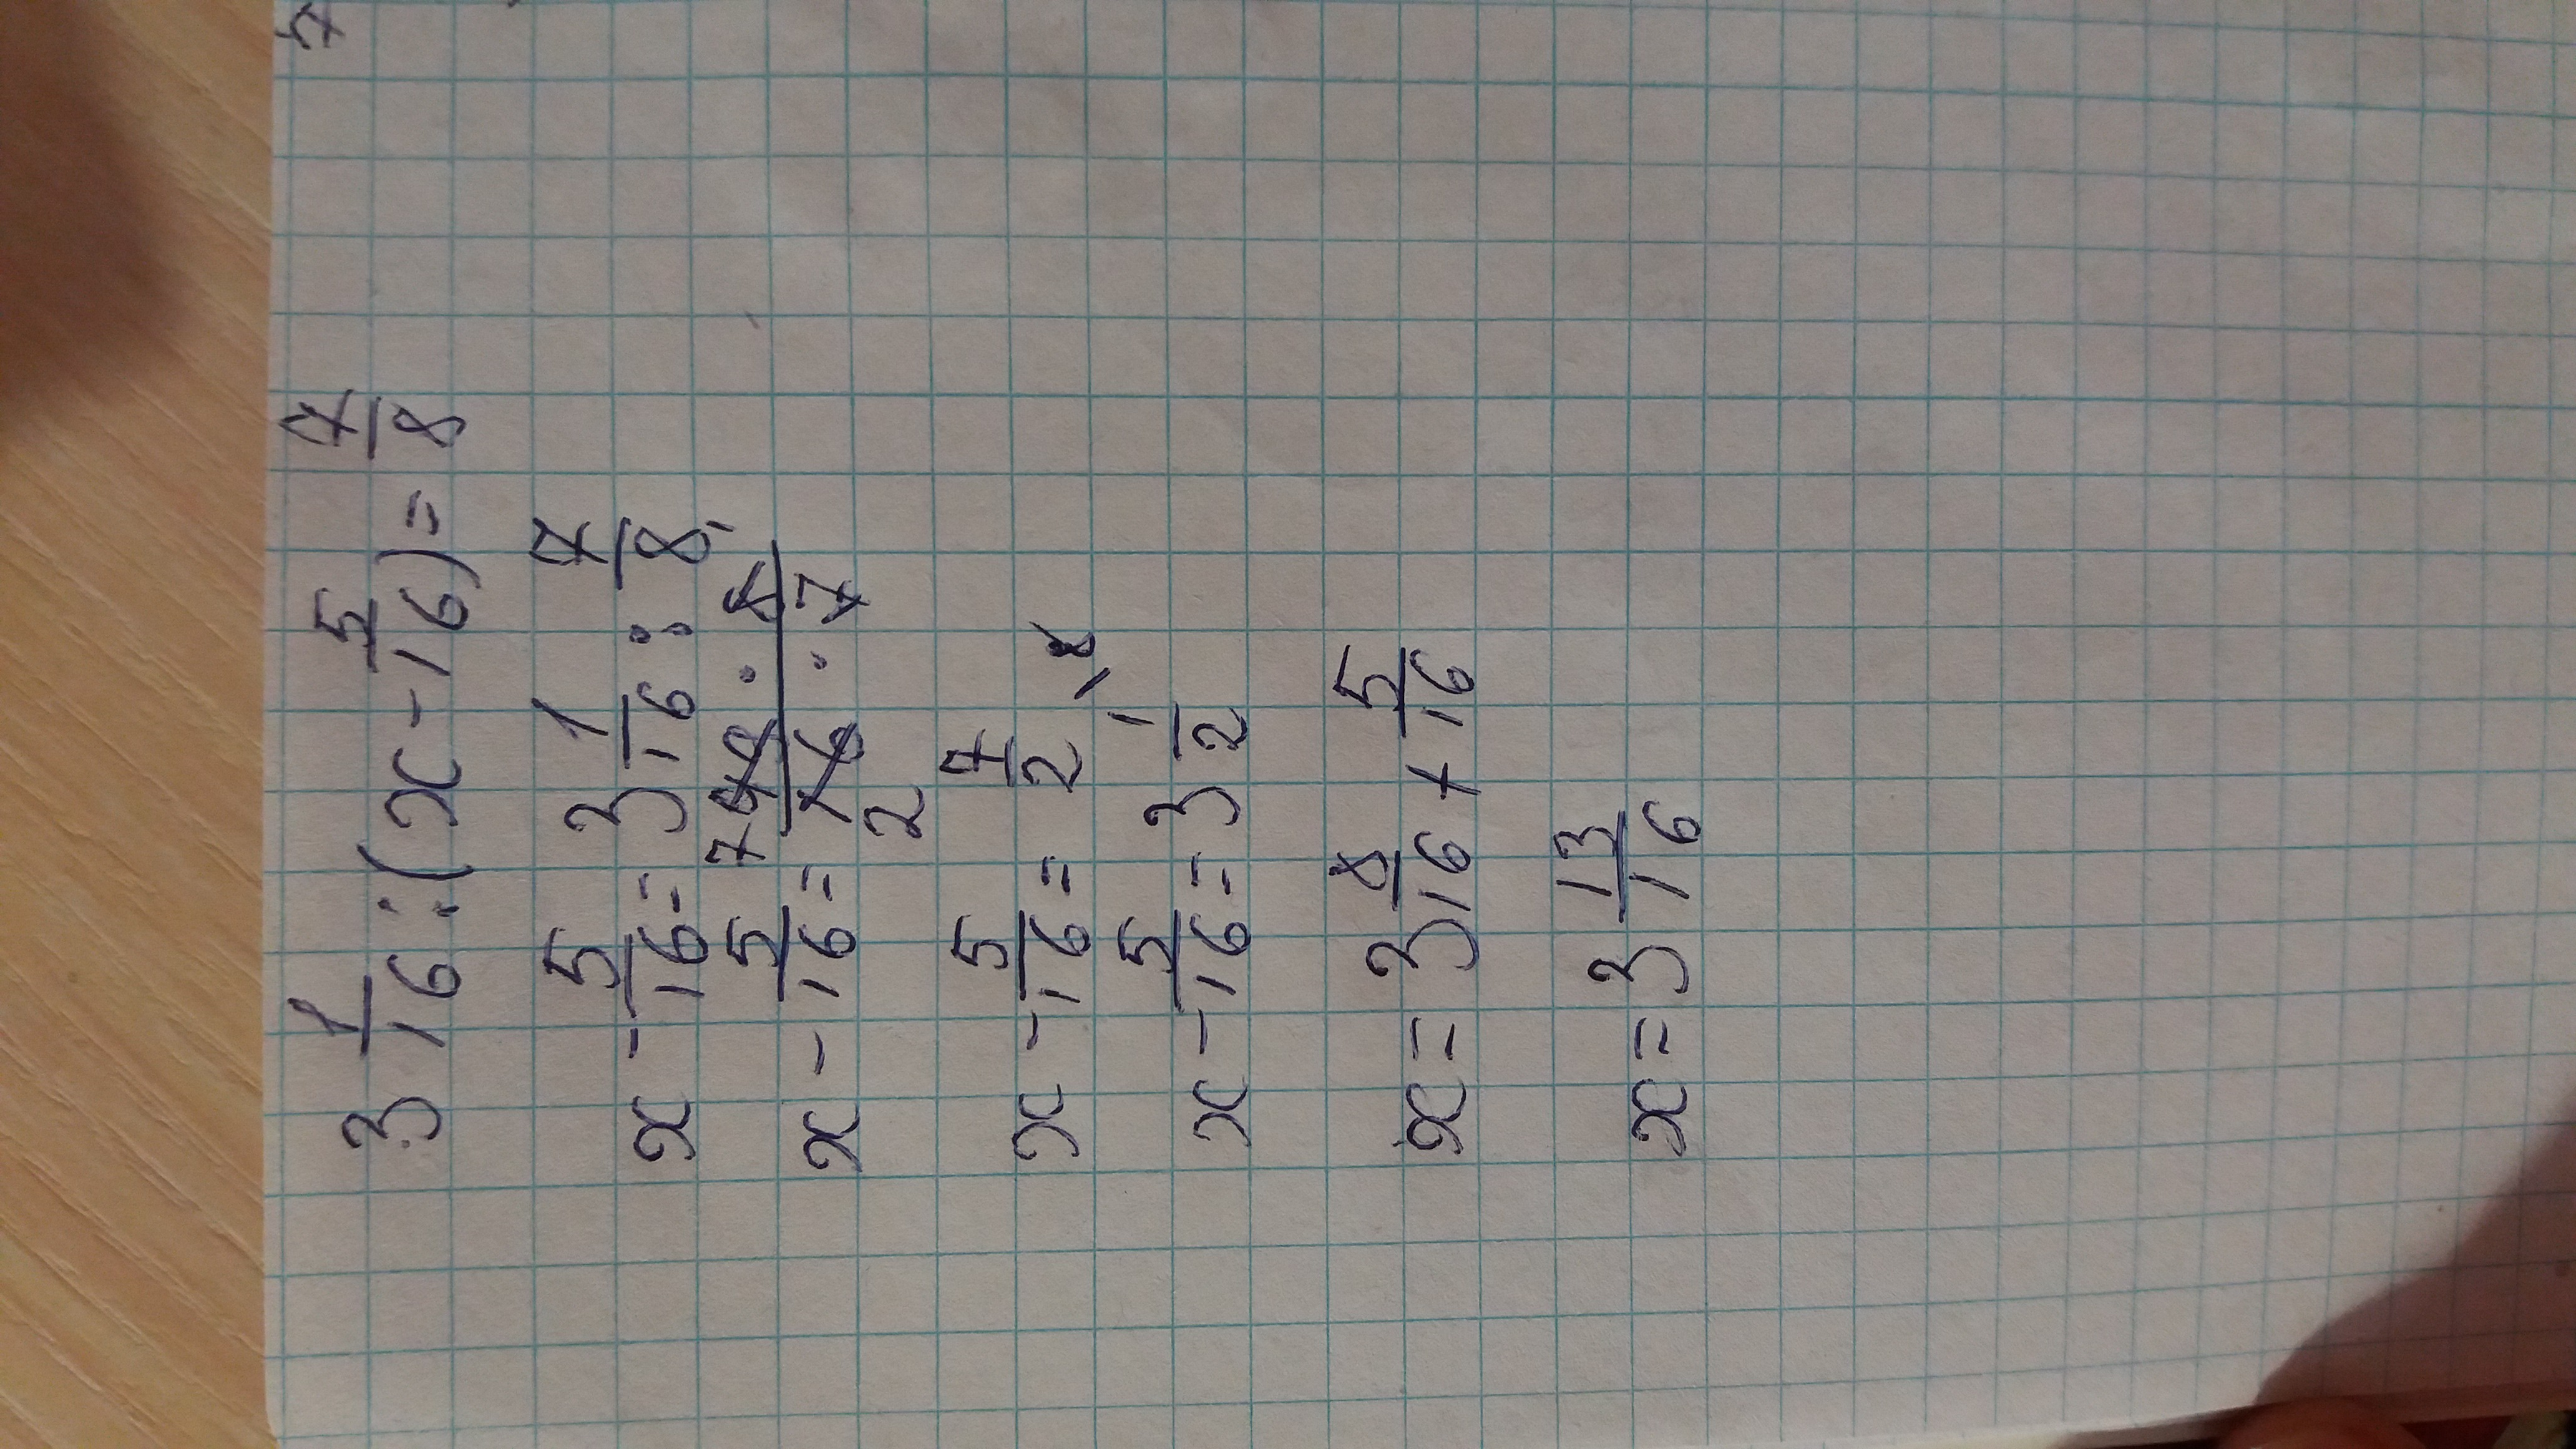 3 1/16 : (x - 5/16) = 7/8
x - 5/16 = 3 1/16 : 7/8
x - 5/16 = 7 49 · 8 1 / 16 · 7 2
x - 5/16 = 7/2
x - 5/16 = 3 1/2 \8
x = 3 8/16 + 5/16
x = 3 13/16